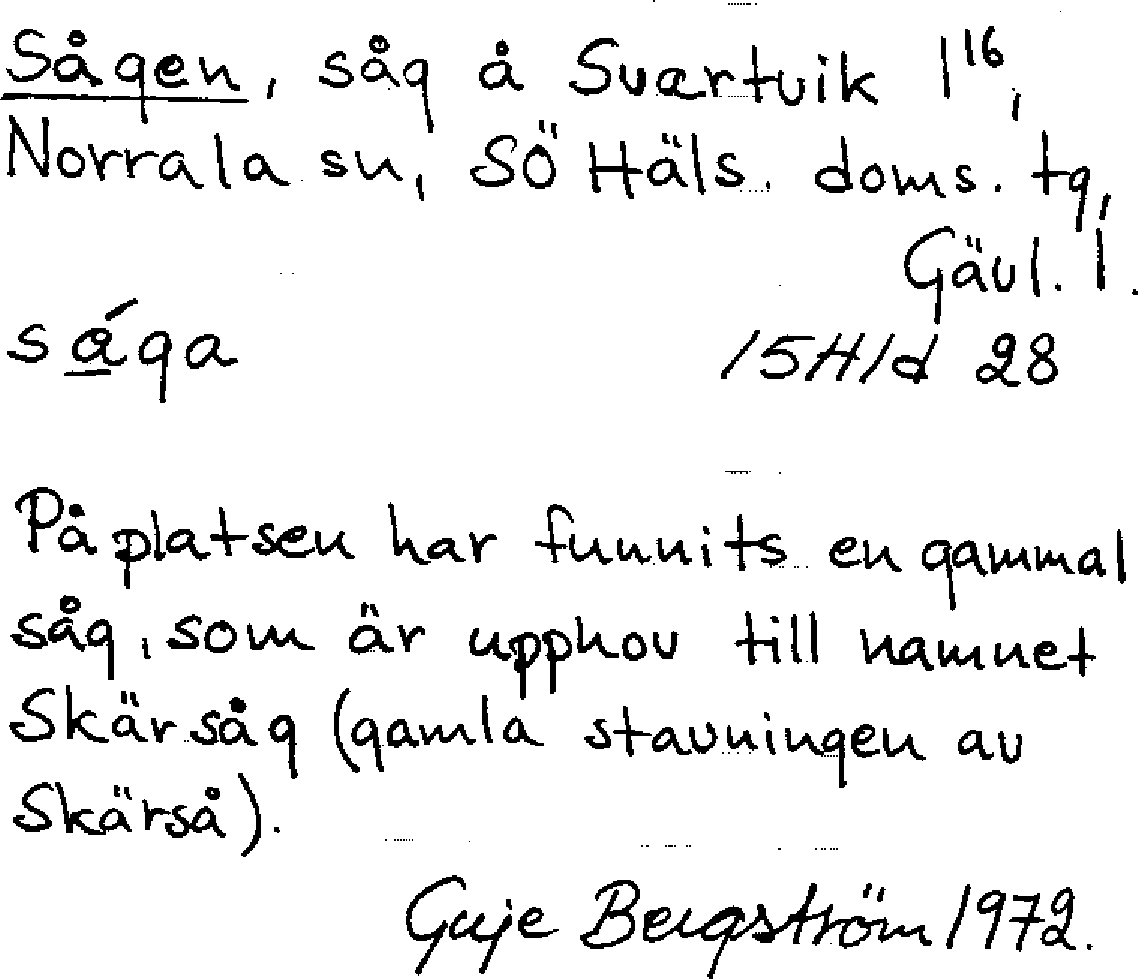 Sågen, såg å Svartvik 1¹⁶,
Norrala sn, SÖ Häls. doms. tg,
Gävl. l.
såga
15H1d 28
På platsen har funnits en gammal
såg, som är upphov till namnet
Skärsåg (gamla stavningen av
Skärså).
Guje Bergström 1972.